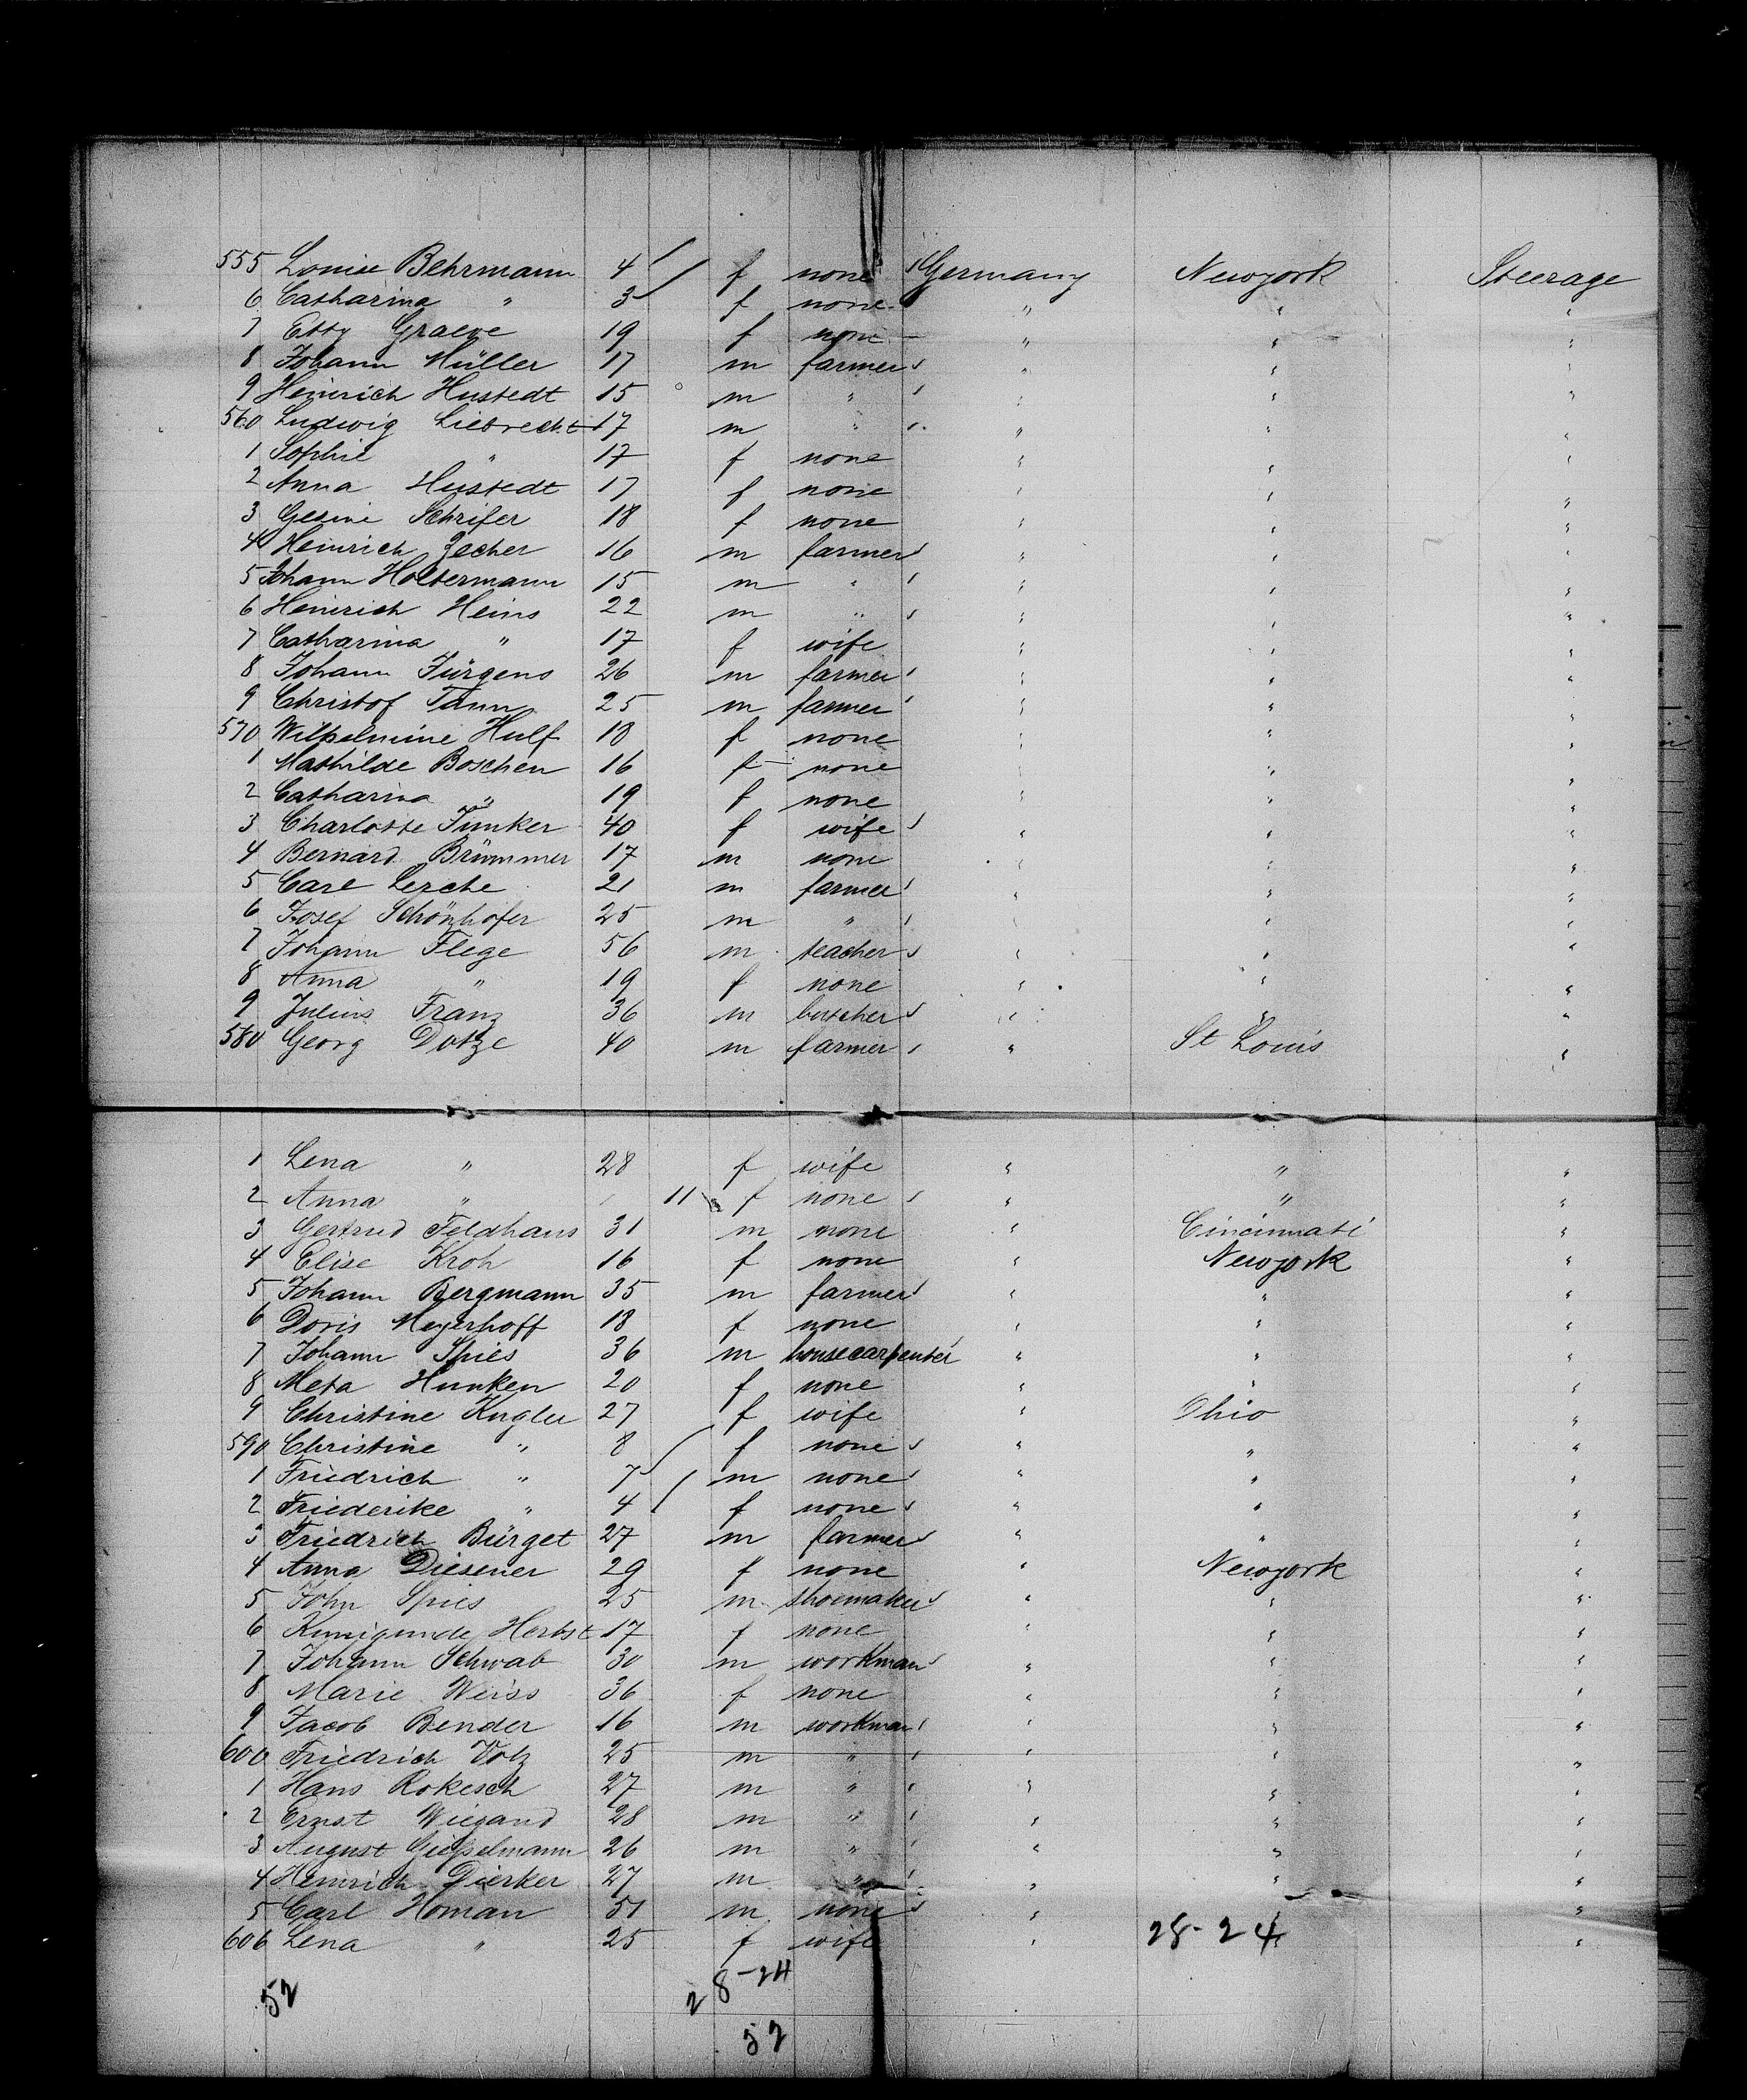 555 Louise Behrmann 4 f none Germany Newyork Steerage
6 Catharina " 3 f none " " "
7 Etty Graeve 19 f none " " "
8 Johann Müller 17 m farmer " " "
9 Heinrich Hustedt 15 m " " " "
560 Ludwig Liebrecht 17 m " " " "
1 Sophie " 17 f none " " "
2 Anna Hustedt 17 f none " " "
3 Gesine Schrifer 18 f none " " "
4 Heinrich Zecher 16 m farmer " " "
5 Johann Holtermann 15 m " " " "
6 Heinrich Heins 22 m " " " "
7 Catharina " 17 f wife " " "
8 Johann Jürgens 26 m farmer " " "
9 Christof Tamm 25 m farmer " " "
570 Wilhelmine Hulf 18 f none " " "
1 Mathilde Boschen 16 f none " " "
2 Catharina " 19 f none " " "
3 Charlotte Junker 40 f wife " " "
4 Bernard Brümmer 17 m none " " "
5 Carl Lerche 21 m farmer " " "
6 Josef Schönhofer 25 m " " " "
7 Johann Flege 56 m teacher " " "
8 Anna " 19 f none " " "
9 Julius Franz 36 m butcher " " "
580 Georg Dotze 40 m farmer " St Louis "
1 Lena " 28 f wife " " "
2 Anna " 11 f none " " "
3 Gertrud Feldhaus 31 m none " Cincinnati "
4 Elise Kroh 16 f none " Newyork "
5 Johann Bergmann 35 m farmer " " "
6 Doris Meyerhoff 18 f none " " "
7 Johann Spies 36 m housecarpenter " " "
8 Meta Hunken 20 f none " " "
9 Christine Kugler 27 f wife " Ohio "
590 Christine " 8 f none " " "
1 Friedrich " 7 m none " " "
2 Friederike " 4 f none " " "
3 Friedrich Bürget 27 m farmer " " "
4 Anna Diesener 29 f none " Newyork "
5 John Spies 25 m shoemaker " " "
6 Kunigunde Herbst 17 f none " " "
7 Johann Schwab 30 m workman " " "
8 Marie Weiss 36 f none " " "
9 Jacob Bender 16 m workman " " "
600 Friedrich Volz 25 m " " " "
1 Hans Rokesch 27 m " " " "
2 Ernst Wiegand 28 m " " " "
3 August Gieselmann 26 m " " " "
4 Heinrich Dierker 27 m " " " "
5 Carl Homan 51 m none " " "
606 Lena " 25 f wife " 28-24 "
52 28-24
52